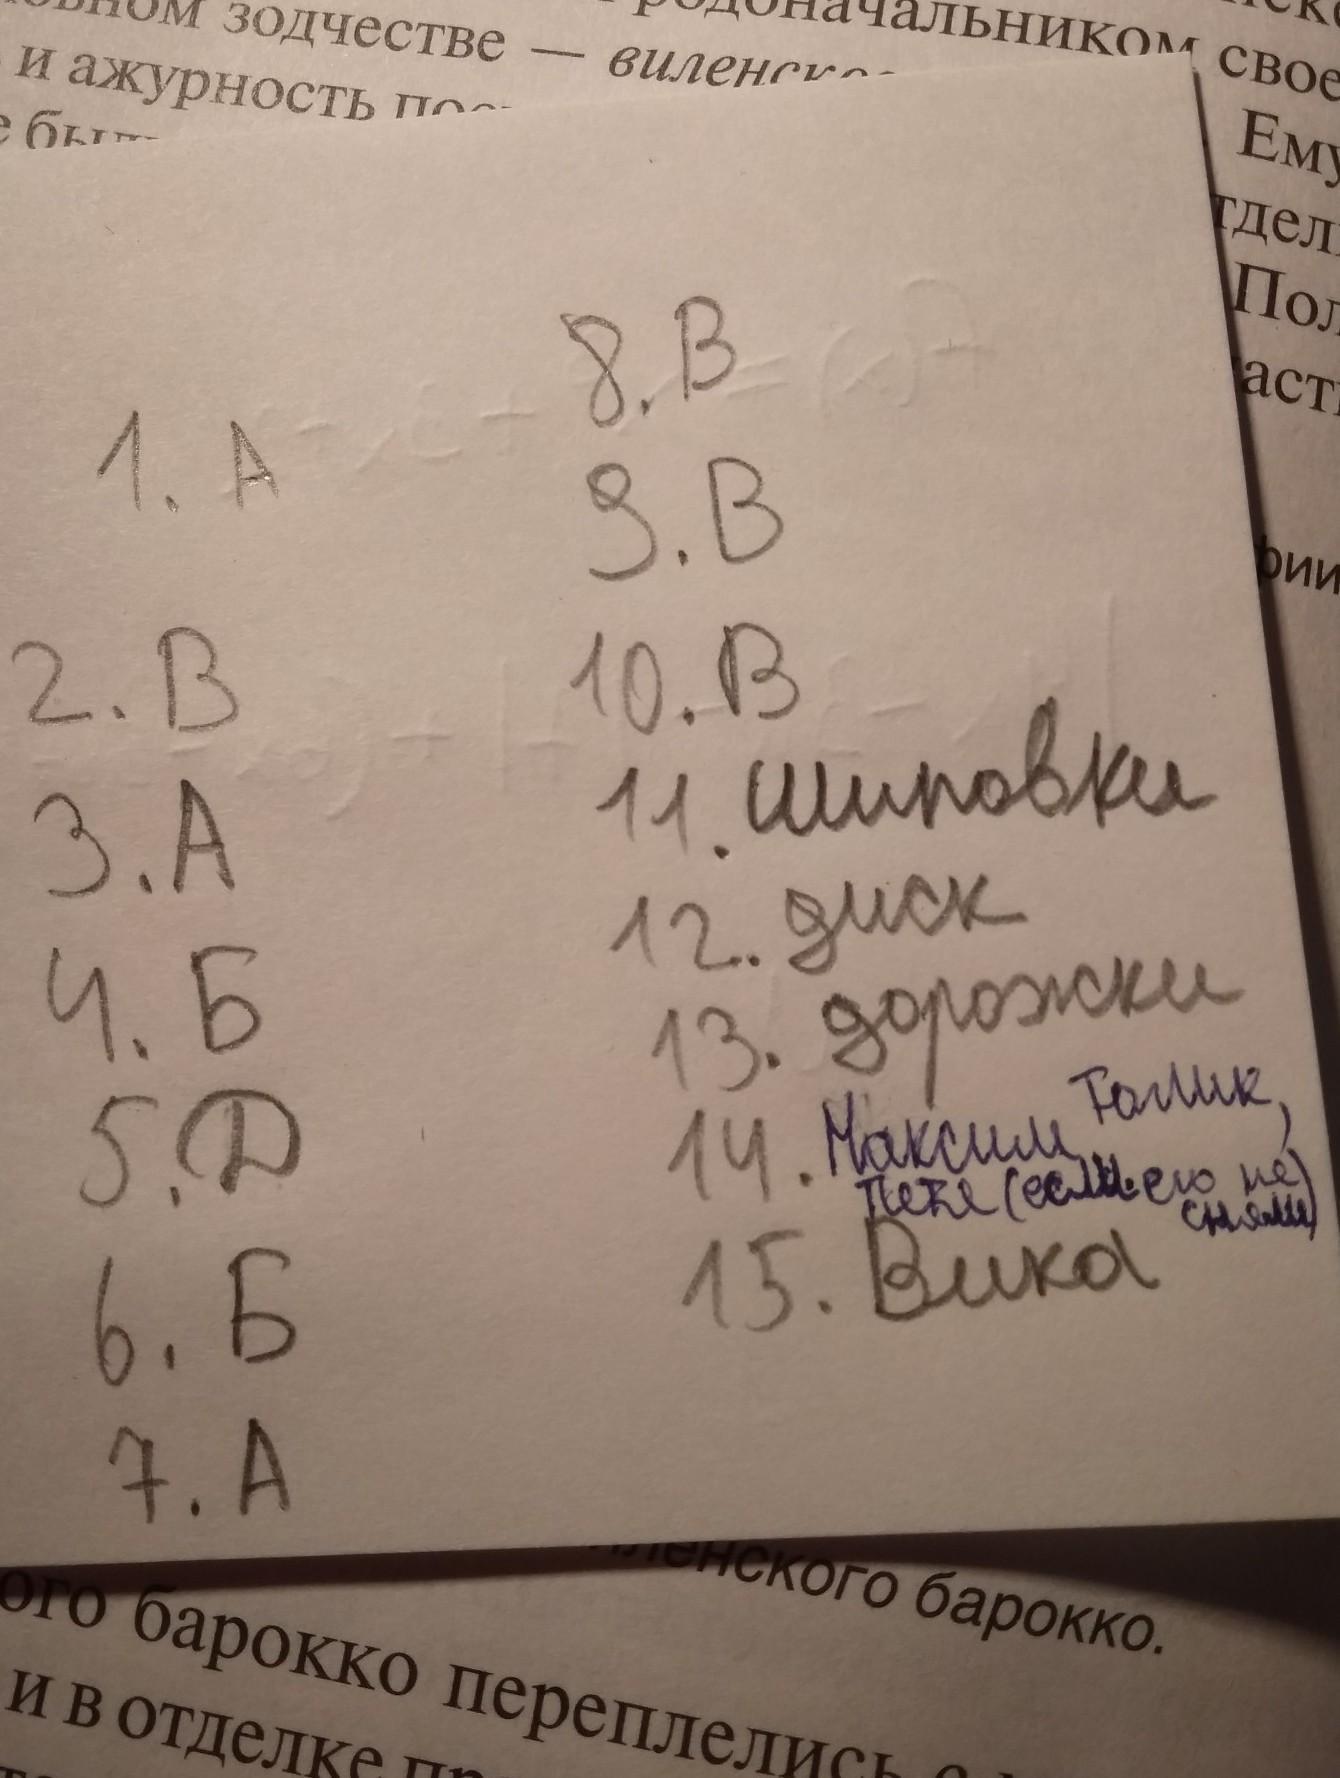 зодчестве — виленск
родоначальником свое
и ажурность
Ему
1. А
2. В
3. А
4. Б
5. Д
6. Б
7. А
8. В
9. В
10. В
11. шиповки
12. диск
13. дорожки
14. Максим, Толик,
Петя (если его не
сняли)
15. Вика
барокко.
ого барокко переплелись с
и в отделке